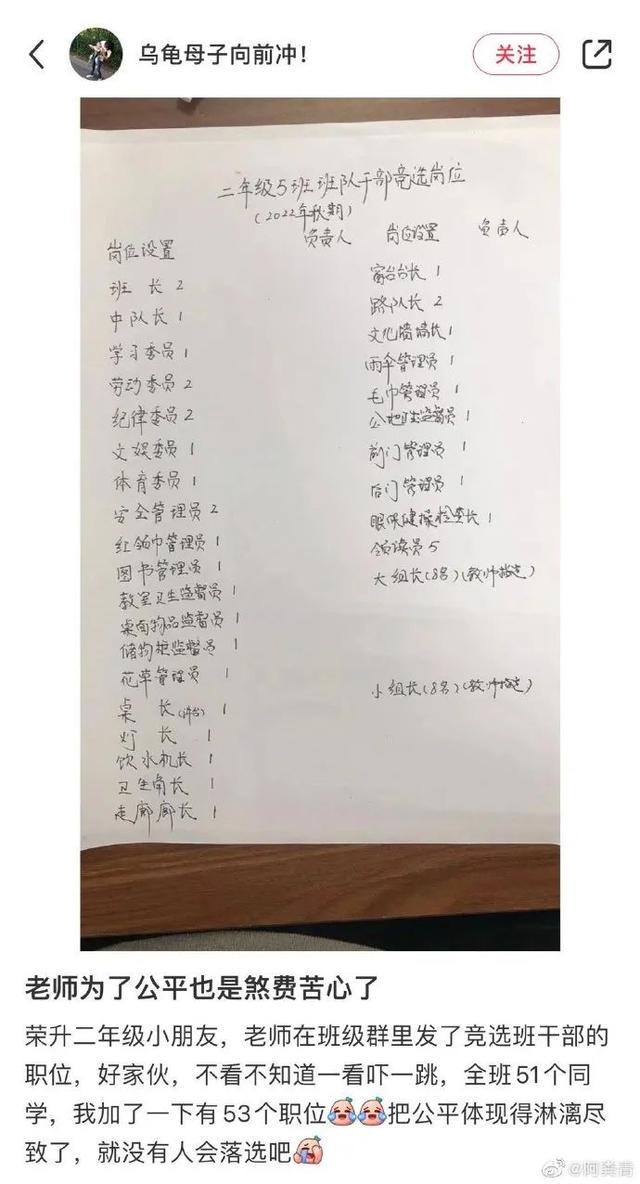 乌龟母子向前冲!
关注
二年级5班班队干部竞选岗位
(2022年秋期)
岗位设置 负责人
班 长 2
中队长 1
学习委员 1
劳动委员 2
纪律委员 2
文娱委员 1
体育委员 1
安全管理员 2
红领巾管理员 1
图书管理员 1
教室卫生监督员 1
桌面物品监督员 1
储物柜监督员 1
花草管理员 1
桌 长(讲台) 1
灯 长 1
饮水机长 1
卫生角长 1
走廊廊长 1
岗位设置 负责人
窗台台长 1
路队长 2
文化墙墙长 1
雨伞管理员 1
毛巾管理员 1
公地卫生监督员 1
前门管理员 1
后门管理员 1
眼保健操检查长 1
领读员 5
大组长(8名)(教师指定)
小组长(8名)(教师指定)
老师为了公平也是煞费苦心了
荣升二年级小朋友，老师在班级群里发了竞选班干部的
职位，好家伙，不看不知道一看吓一跳，全班51个同
学，我加了一下有53个职位😂😂把公平体现得淋漓尽
致了，就没有人会落选吧😭
@阿龚青